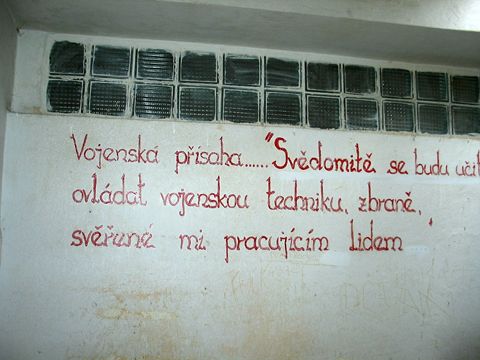 Vojenská přísaha......"Svědomitě se budu učit
ovládat vojenskou techniku, zbraně,
svěřené mi pracujícím lidem